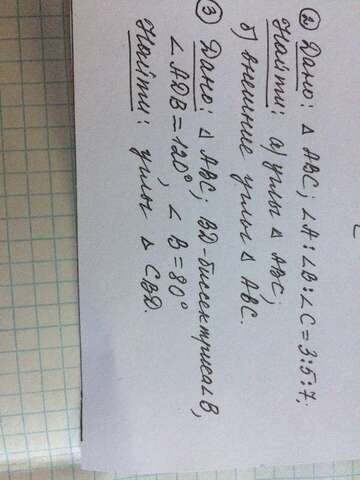 ② Дано: △ ABC; ∠A:∠B:∠C=3:5:7.
Найти: а) углы △ ABC;
б) внешние углы △ ABC.
③ Дано: △ ABC; BD-биссектриса∠B,
∠ADB=120°, ∠B=80°
Найти: углы △ CBD.